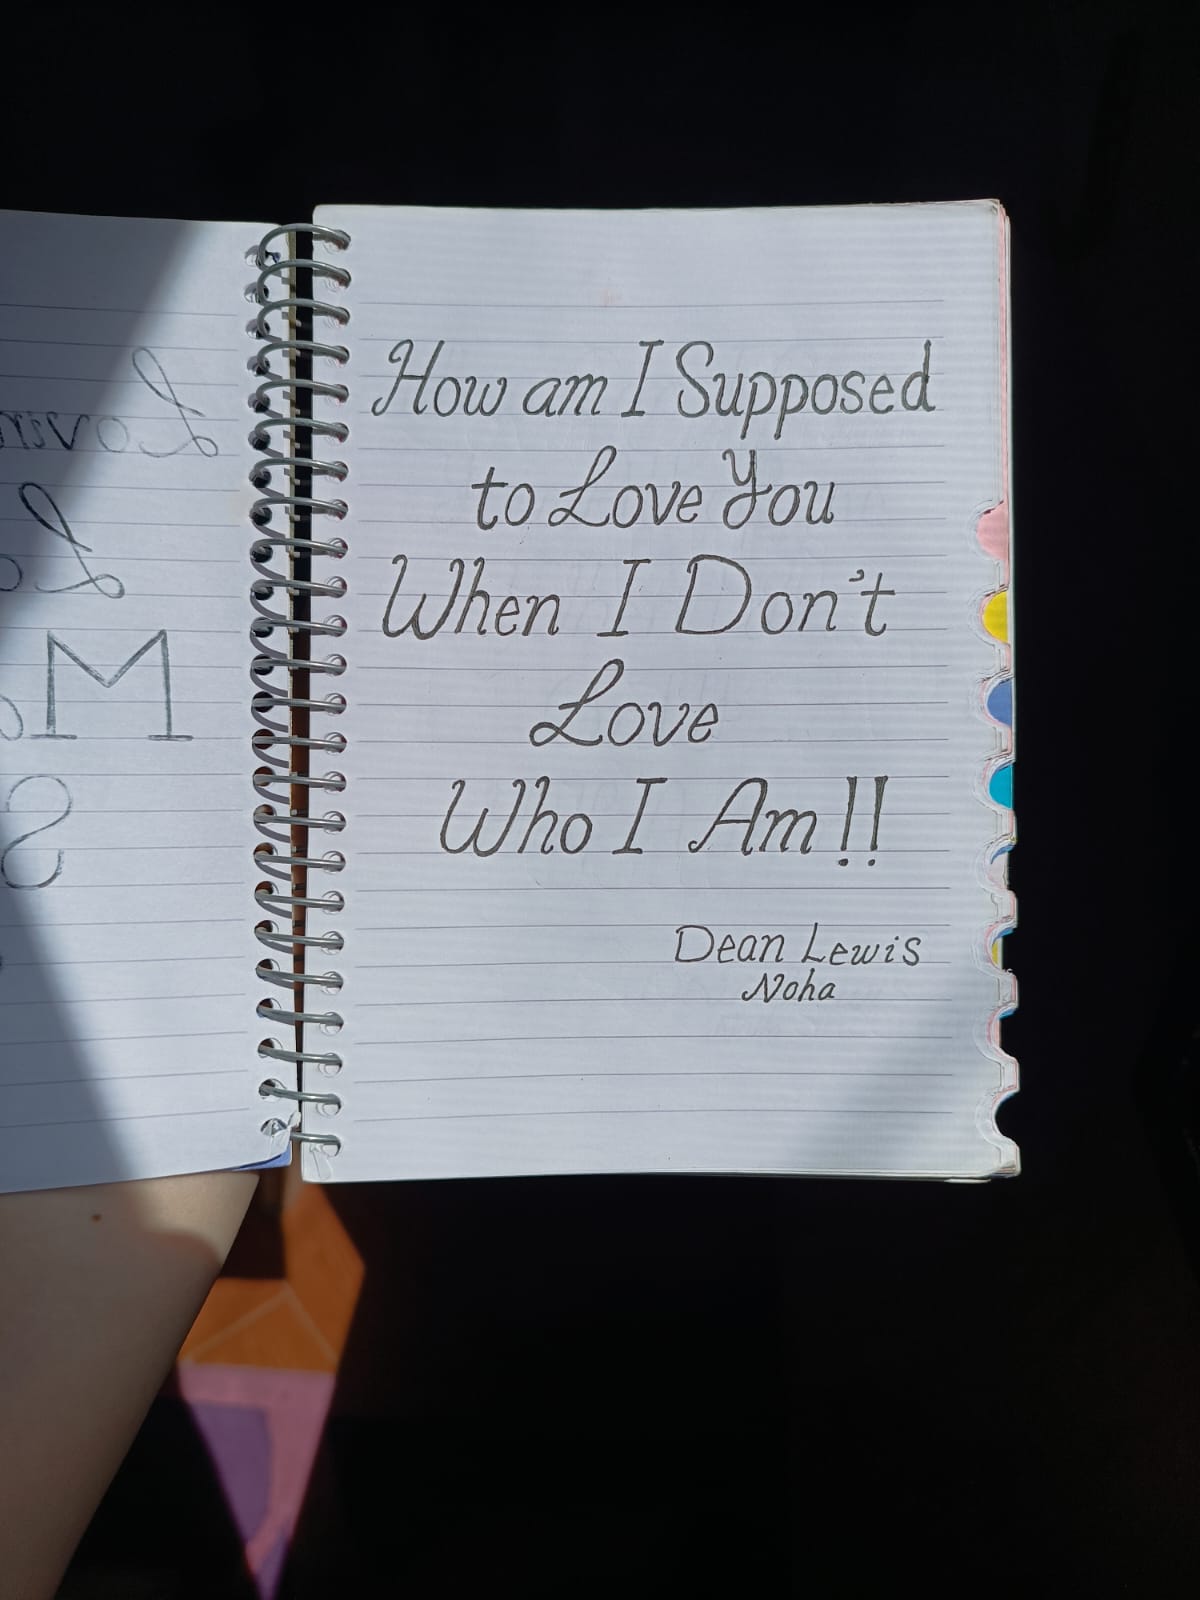 How am I Supposed
to Love You
When I Don't
Love
Who I Am!!
Dean Lewis
Noha